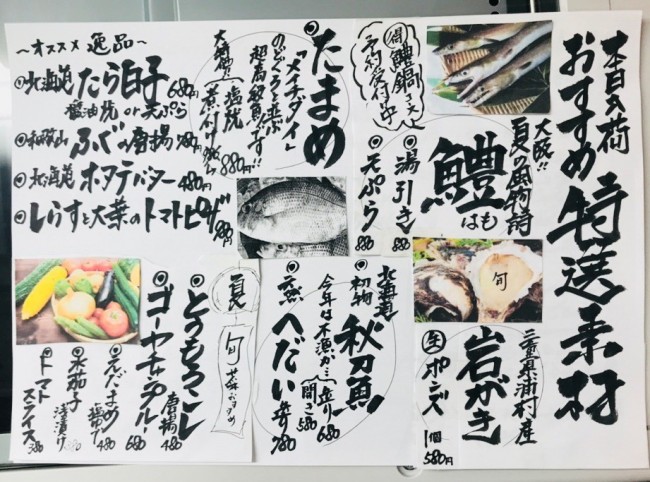 本日入荷
おすすめ特選素材
大阪!!
夏の風物詩
鱧
はも
湯引き 880
天ぷら 880
得
鱧鍋コース
予約受付中
三重県浦村産
岩がき
旬
生 ポン酢
1個
580円
たまめ
「メイチダイ」
のどぐろと並ぶ
超高級魚です!!
大特価!!
塩焼
煮付け
880円
北海道
初物
秋刀魚
今年は不漁カミ
造り 680
開き 580
天然 へだい 造り 780
〜オススメ 逸品〜
北海道 たら白子 680円
醤油焼 or 天ぷら
和歌山 ふぐの唐揚 780円
北海道 ホタテバター 480円
しらすと大葉のトマトピザ 780円
夏
旬
とうもろこし 唐揚 480
ゴーヤチャンプル! 680
えだまめ 塩ゆで 480
水茄子 浅漬け 580
トマトスライス 380